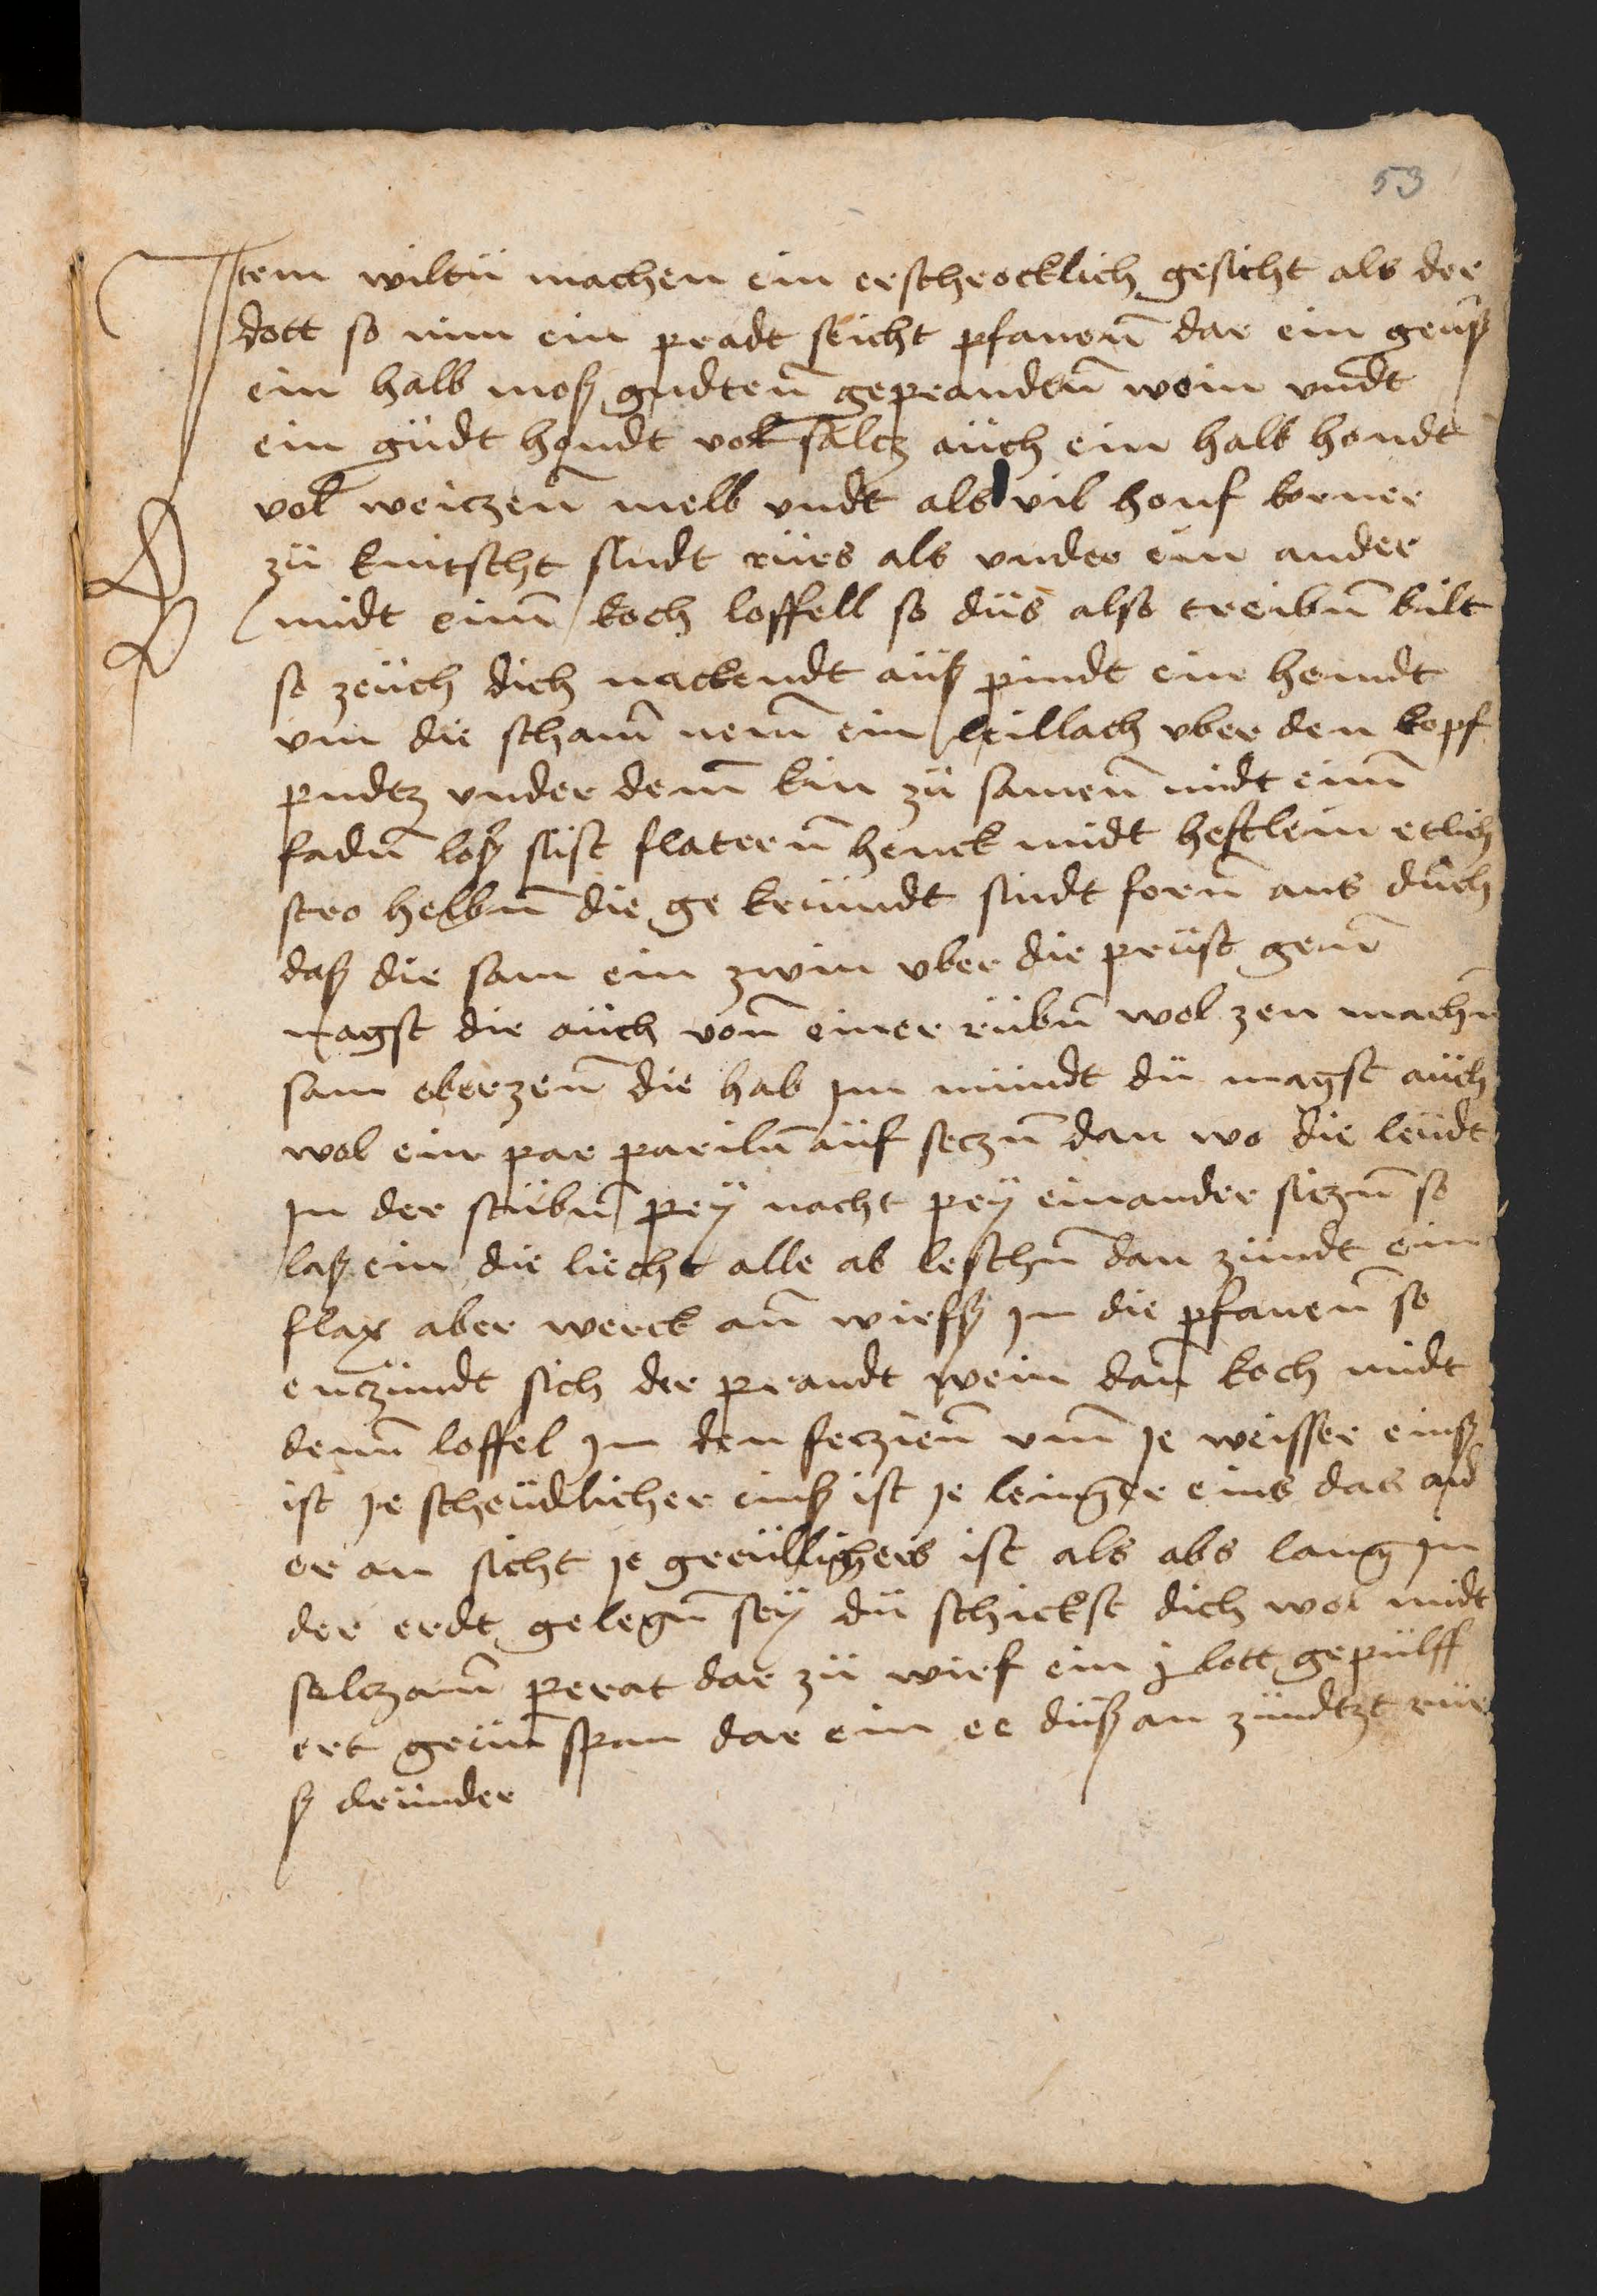 53
Jtem wiltü machen ein erschrocklich gesicht als der
dott so nim ein pradt seicht pfanenn dar ein geüß
ein halb moß gudtenn geprandtnn wein vndt
ein güdt hondt vol salcz aüch ein halb hondt
vol weiczenn melb vndt als vil honf korner
zü knitscht sindt rürs als vnder ein ander
midt einm koch loffell so düs also treibnn bilt
so zeüch dich nackendt aüß pindt ein hemdt
vm die scham nem ein leillach vber den kopf
pndtz vnder dem kin zü samenn midt einm
fadnn loß süst flaternn henck midt heftlein etlich
stro helbnn die ge krümdt sindt fornn ans düch
daß die sam ein zwin vber die prüst genn
magst die aüch vonn einer rübnn wol zen machnn
sam eberzenn die hab jm mündt dü magst aüch
wol ein par parilnn aüf seczn dan wo die leüdt
jn der stübnn pey nacht pey einander siczn so
laß ein die liecht alle ab leschnn dan zündt ein
flax aber werck ann wirfß jn die pfanenn so
enczündt sich der prandt wein dan koch midt
dem loffel jm den feczienn vm je weisser einß
ist je scheüdlicher einß ist je lenger eins das and
er an sicht je greülligers ist als abs lang jn
der erdt gelegnn sey dü schickst dich wol midt
selczamm perat dar zü wirf ein j lott gepülff
ert grün span dar ein ee düß an zündtzt rür
ß dründer